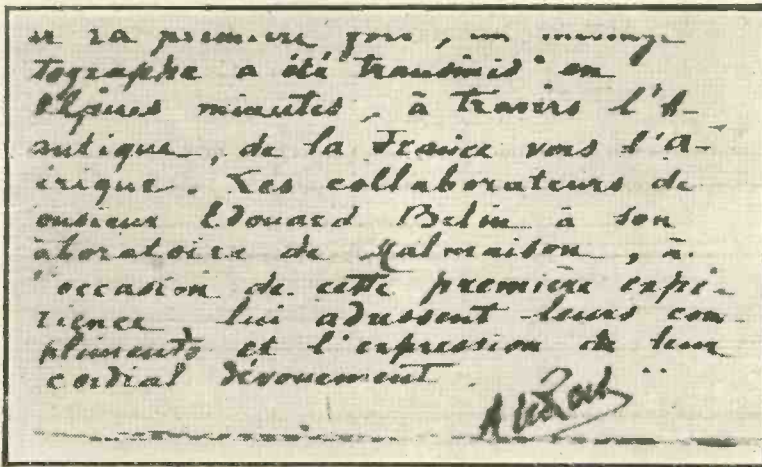 la première fois, un message
tographe a été transmis en
elques minutes, à travers l'A-
antique, de la France vers l'A-
érique. Les collaborateurs de
onsieur Edouard Belin à son
aboratoire de Malmaison, à
l'occasion de cette première expé-
rience lui adressent leurs com-
pliments et l'expression de leur
cordial dévouement.